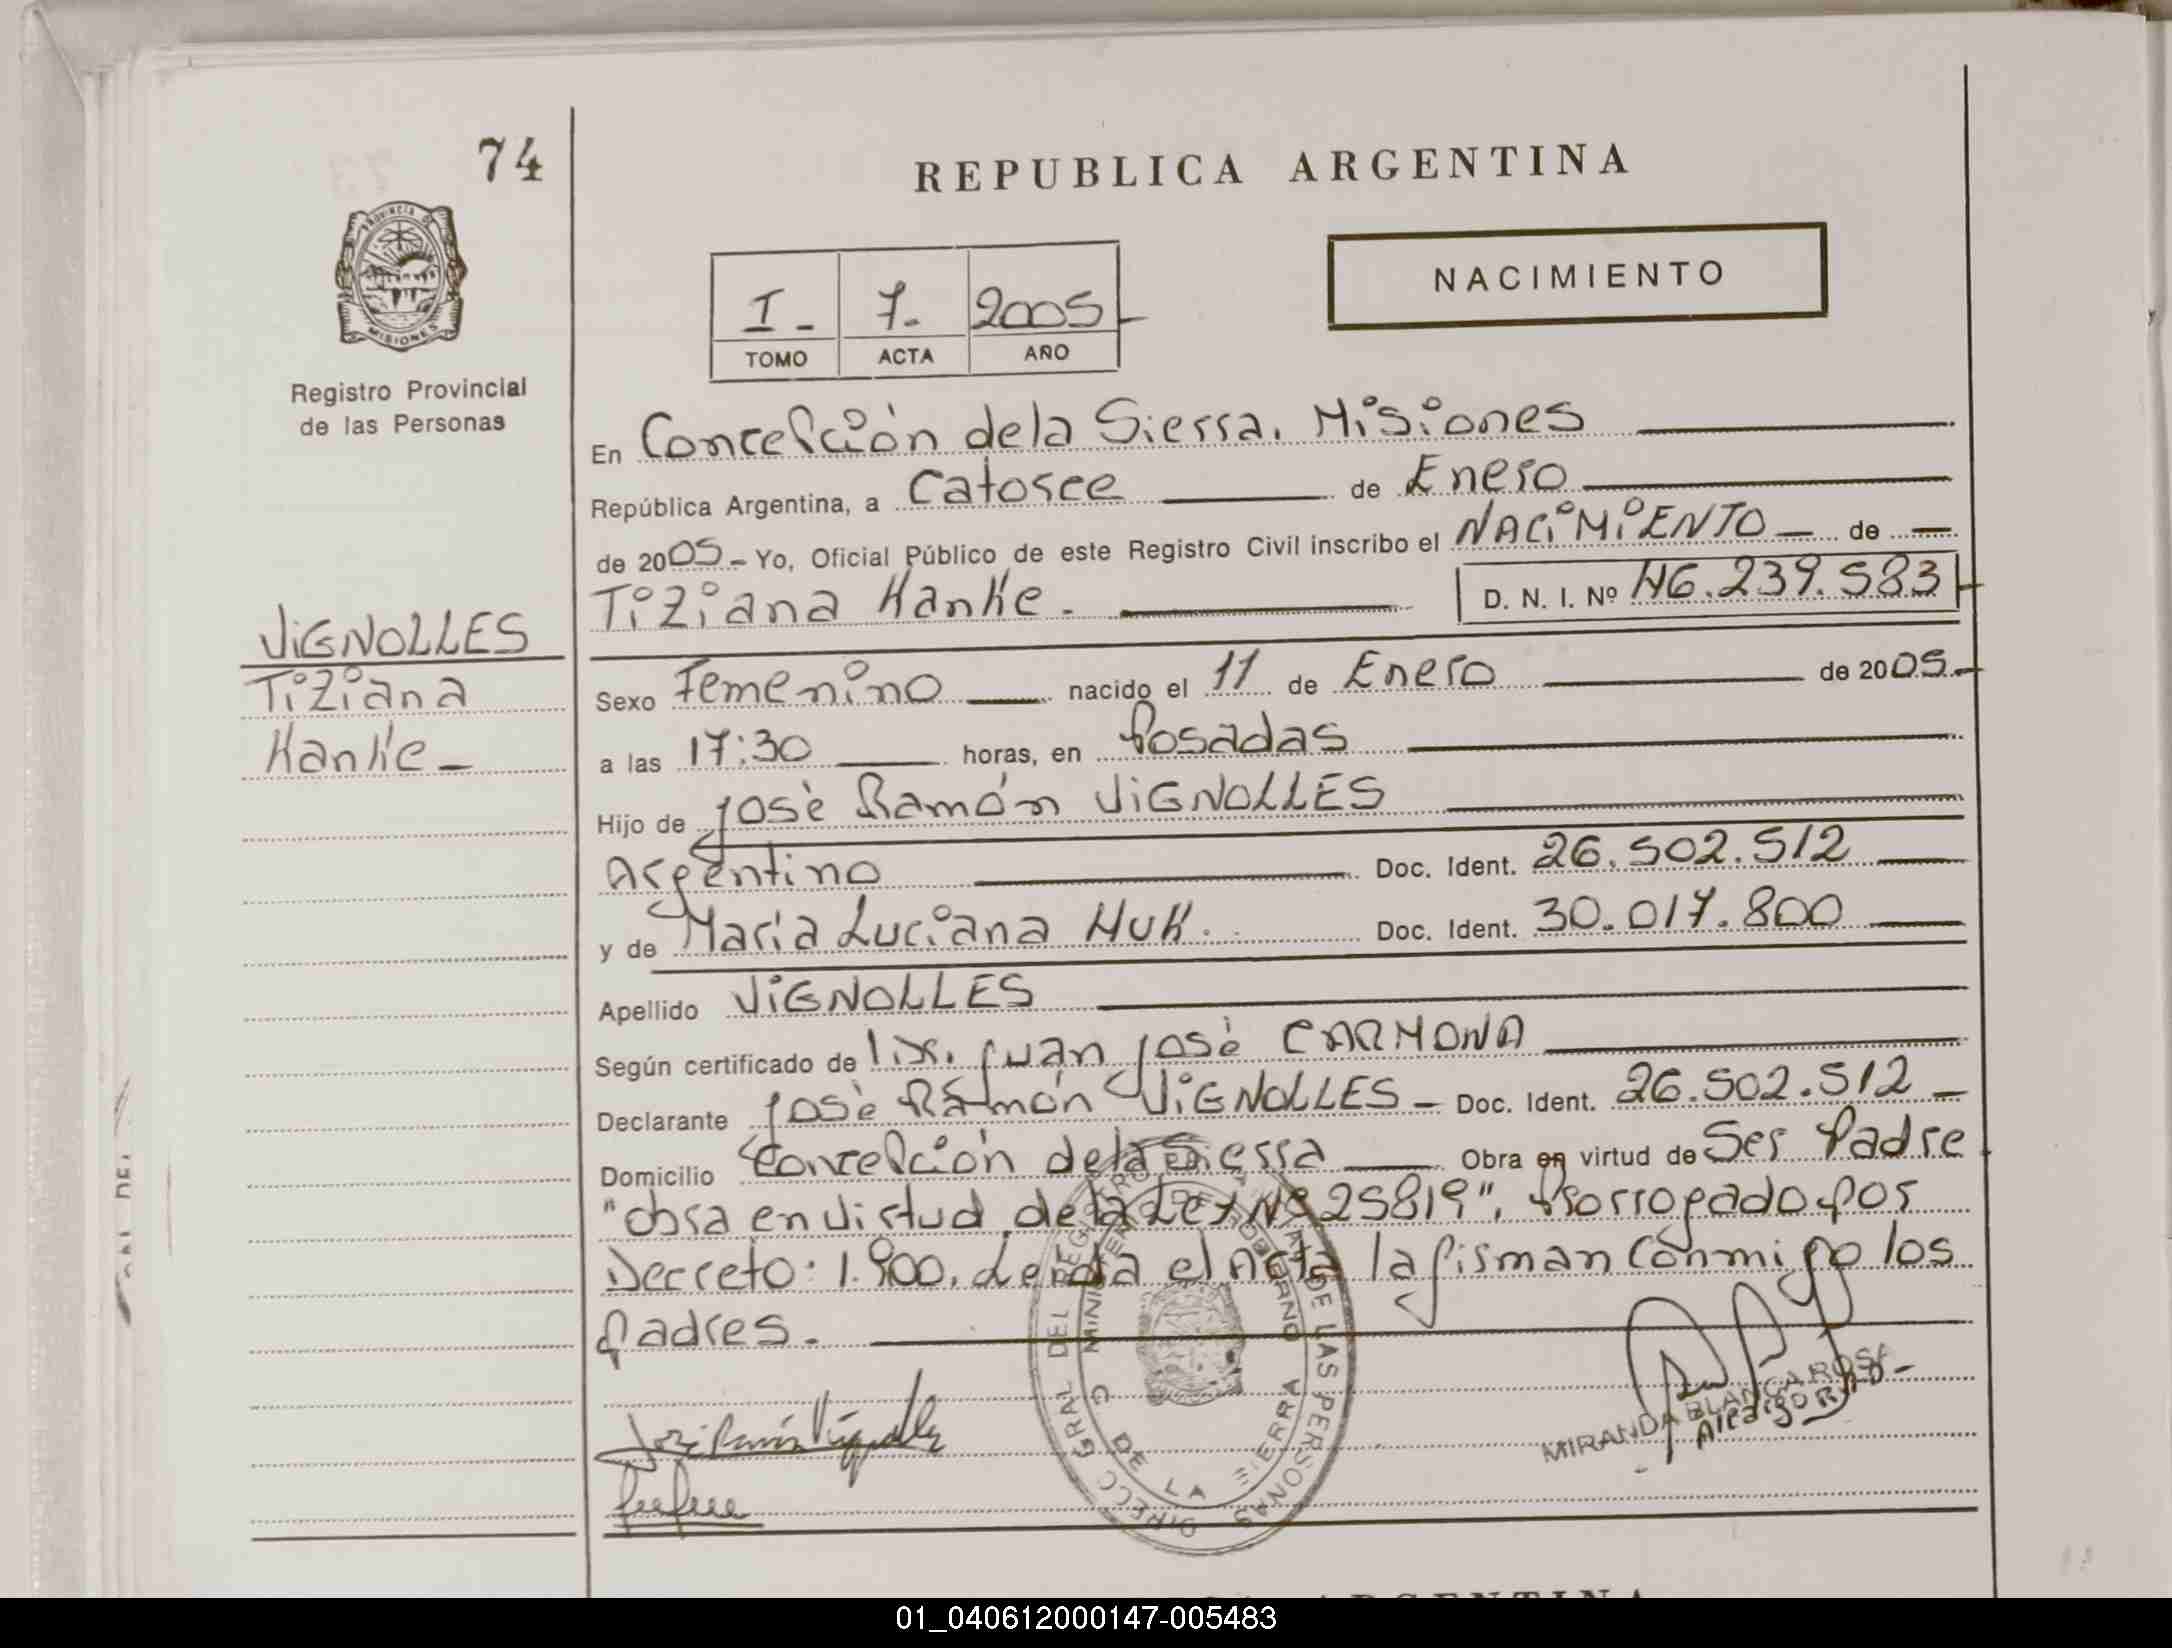 74
REPUBLICA ARGENTINA
PROVINCIA DE
MISIONES
Registro Provincial
de las Personas
NACIMIENTO
I - 7. 2005
TOMO ACTA AÑO
En Concepción de la Sierra. Misiones
República Argentina, a Catorce de Enero
de 2005 - Yo, Oficial Público de este Registro Civil inscribo el NACIMIENTO - de -
Tiziana Hanke. D. N. I. Nº 46.239.583
VIGNOLLES
Tiziana
Hanke -
Sexo Femenino nacido el 11 de Enero de 2005.-
a las 17:30 horas, en Posadas
Hijo de José Ramón VIGNOLLES
Argentino Doc. Ident. 26.502.512
y de María Luciana HUK. Doc. Ident. 30.017.800
Apellido VIGNOLLES
Según certificado de Dr. Juan José CARMONA
Declarante José Ramón VIGNOLLES - Doc. Ident. 26.502.512 -
Domicilio Concepción de la Sierra Obra en virtud de Ser Padre
"obra en virtud de la Ley Nº 25819", Prorrogado por
Decreto: 1.900. Leída el Acta la firman conmigo los
Padres.
DIRECC GRAL DEL REGISTRO DE LAS PERSONAS
DE LA SIERRA
José Ramón Vignolles
MIRANDA BLANCA ROSA
01_040612000147-005483